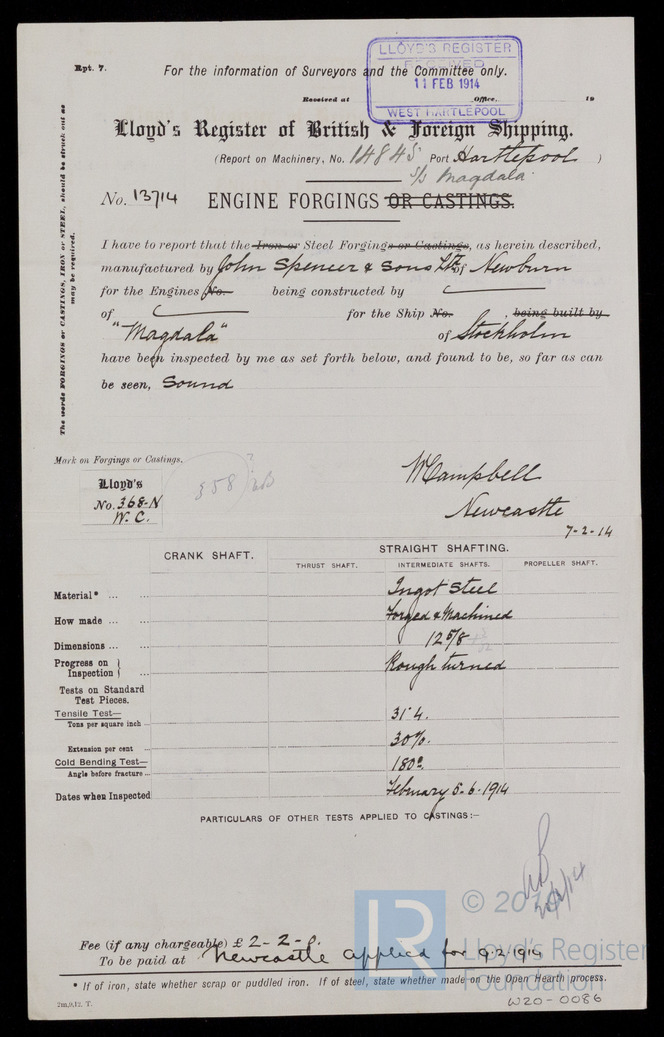 Rpt. 7.
For the information of Surveyors and the Committee only.
LLOYD'S REGISTER
RECEIVED
11 FEB 1914
WEST HARTLEPOOL
Received at Office, 19
Lloyd's Register of British & Foreign Shipping.
(Report on Machinery, No. 14845 Port Hartlepool )
S/S Magdala
No. 13714 ENGINE FORGINGS OR CASTINGS.
The words FORGINGS or CASTINGS, IRON or STEEL, should be struck out as may be required.
I have to report that the Iron or Steel Forgings or Castings, as herein described,
manufactured by John Spencer & Sons Ltd of Newburn
for the Engines No. being constructed by
of for the Ship No. , being built by
"Magdala" of Stockholm
have been inspected by me as set forth below, and found to be, so far as can
be seen, Sound
Mark on Forgings or Castings.
Lloyd's
No. 368-N
W. C.
358
W Campbell
Newcastle
7-2-14
CRANK SHAFT. STRAIGHT SHAFTING.
THRUST SHAFT. INTERMEDIATE SHAFTS. PROPELLER SHAFT.
Material* ... ... Ingot Steel
How made ... ... Forged & Machined
Dimensions ... ... 12 5/8
Progress on Inspection } ... Rough turned
Tests on Standard
Test Pieces.
Tensile Test—
Tons per square inch ... 31.4.
Extension per cent ... 30%.
Cold Bending Test—
Angle before fracture ... 180°.
Dates when Inspected February 5-6-1914
PARTICULARS OF OTHER TESTS APPLIED TO CASTINGS:—
Fee (if any chargeable) £ 2-2-0.
To be paid at Newcastle applied for 9.2.1914
* If of iron, state whether scrap or puddled iron. If of steel, state whether made on the Open Hearth process.
2m,9,12. T.
W20-0086
LR
Lloyd's Register
Foundation